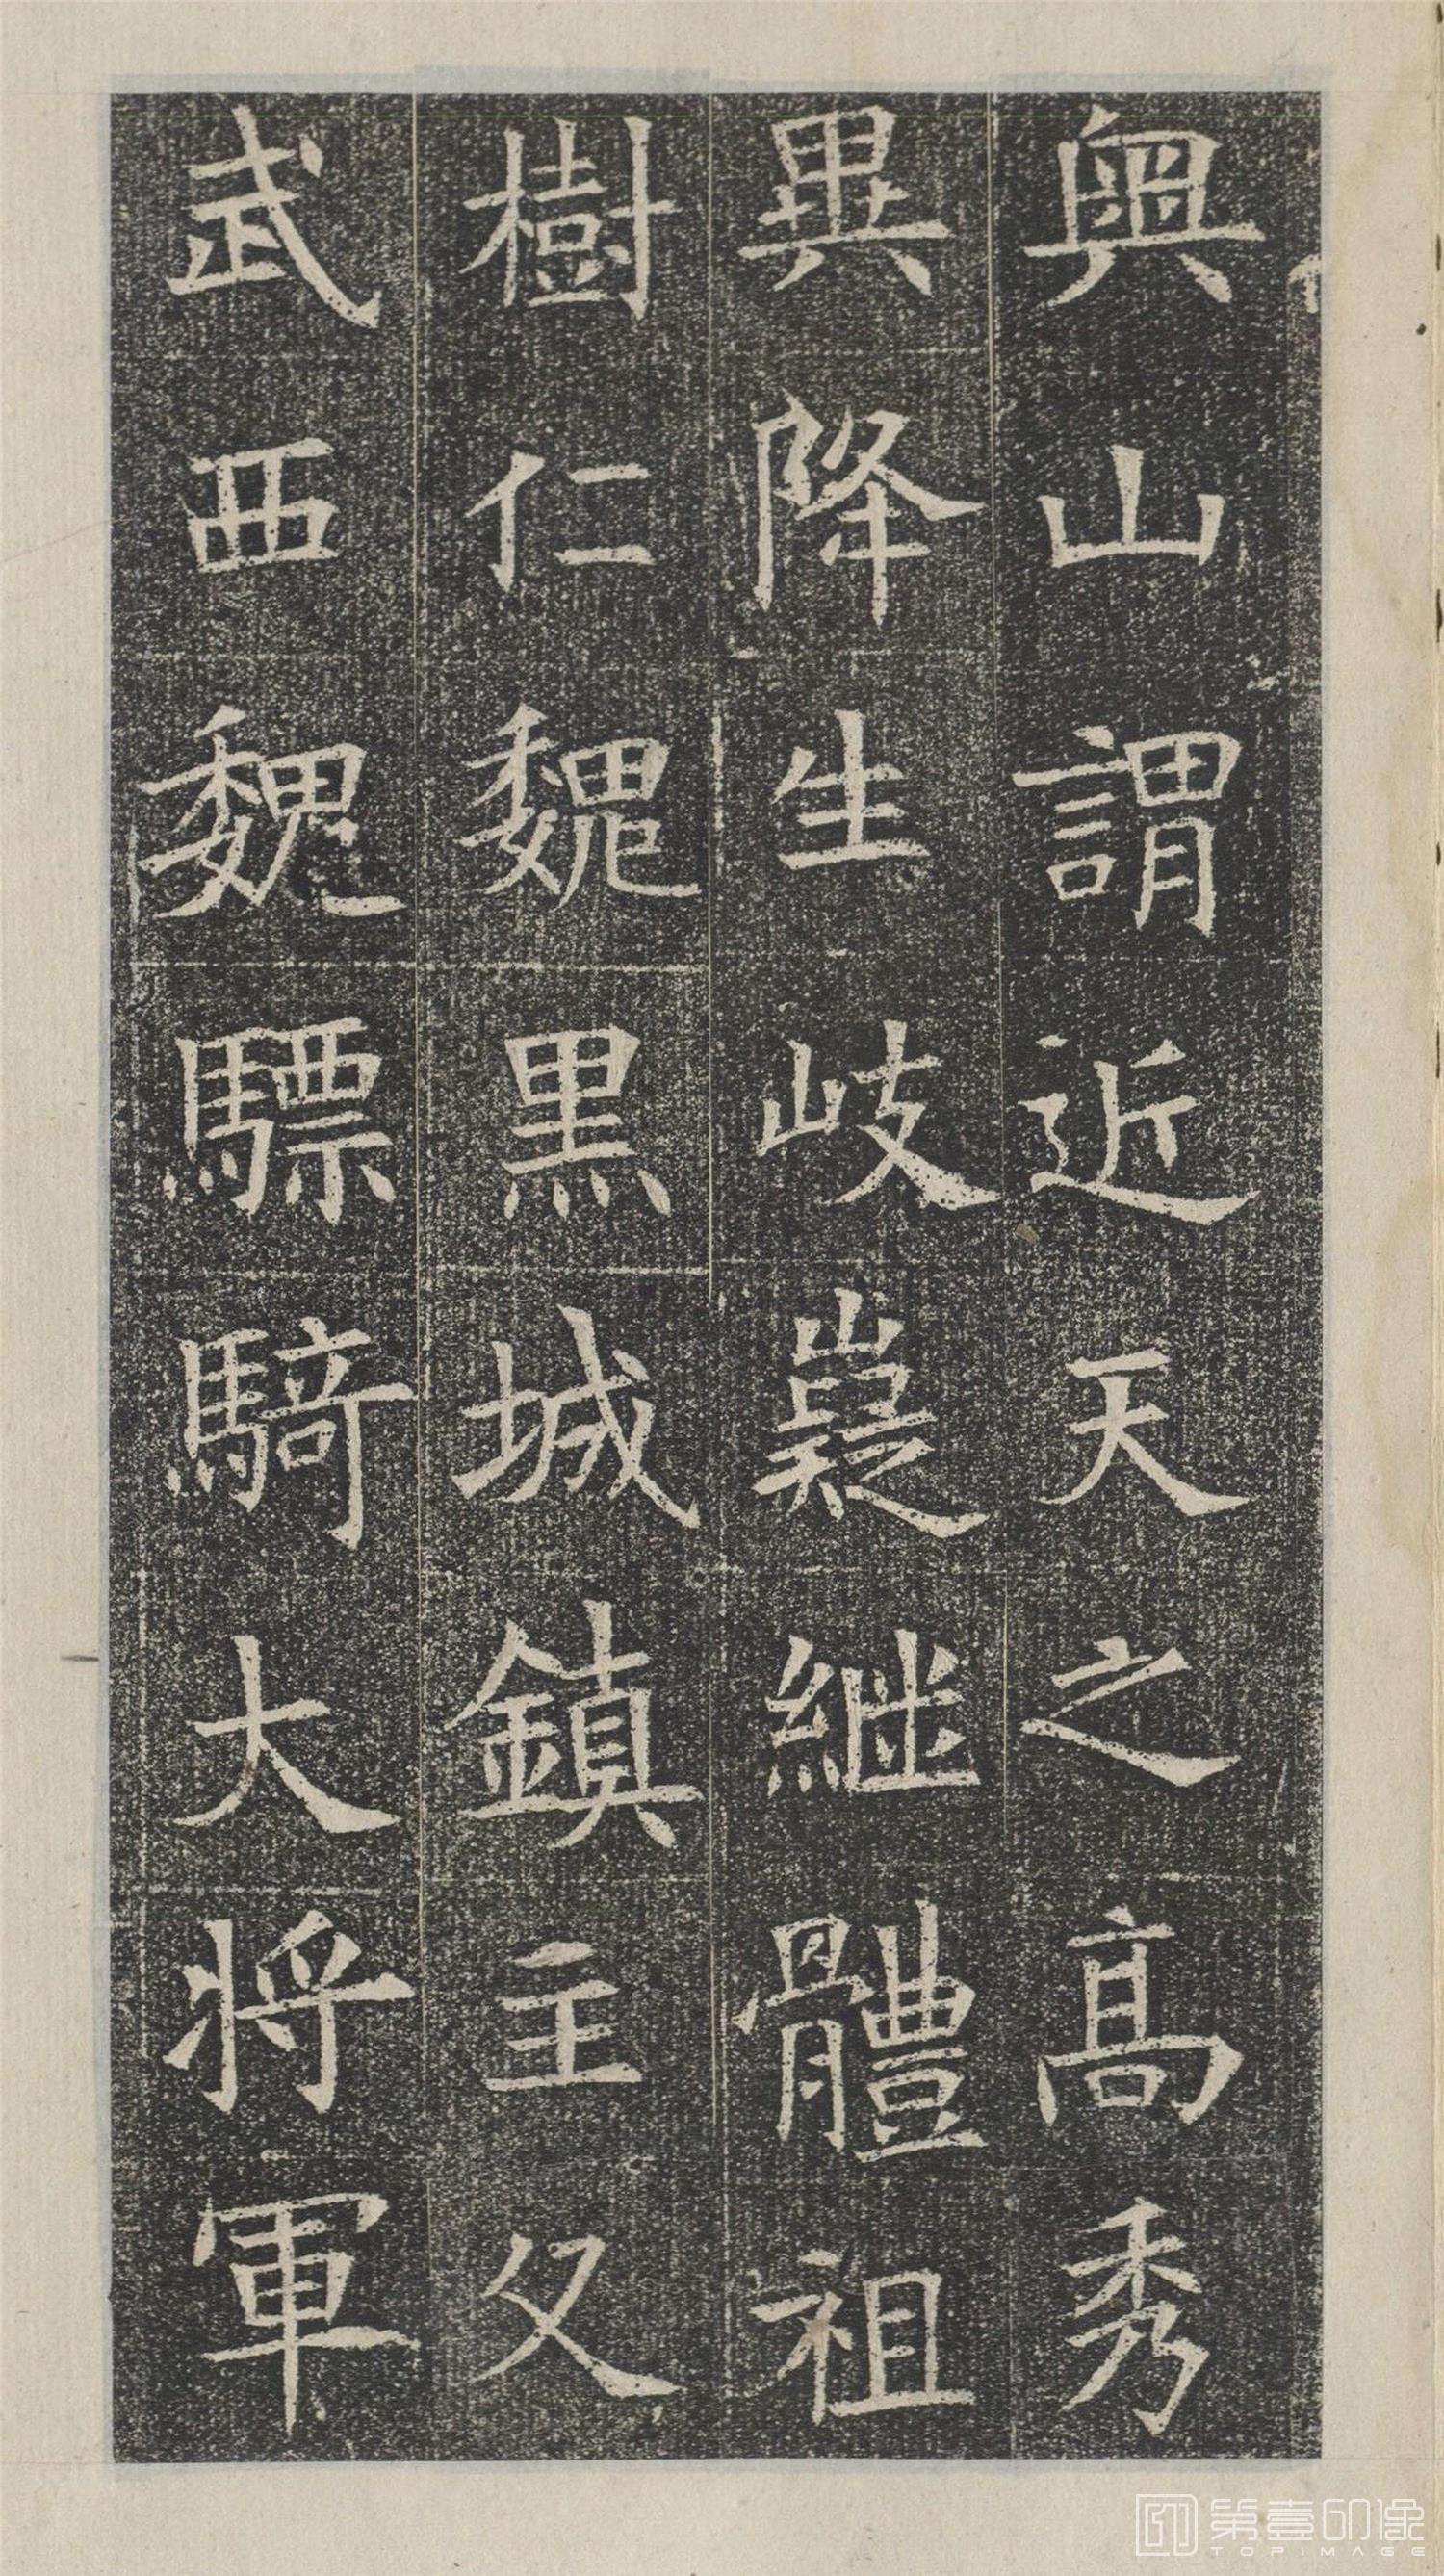 輿山謂近天之高秀
異降生岐嶷継體祖
樹仁魏黑城鎮主父
武西魏驃騎大将軍
第壹印像
TOPIMAGE